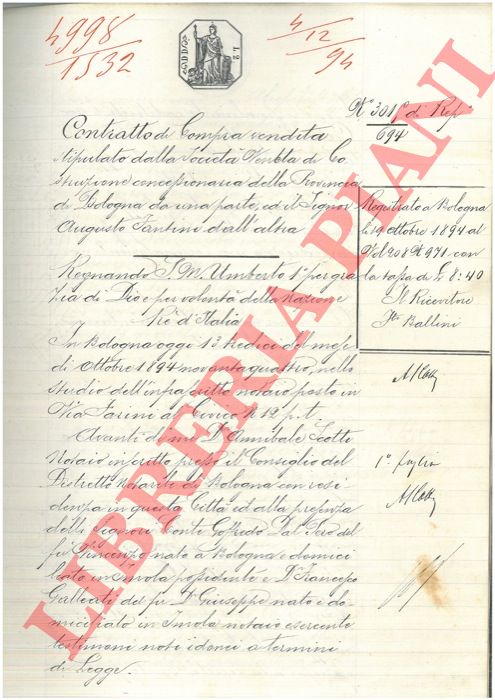 4998
1532
4/12
94
N° 301 di Rep°
694
Contratto di Compra vendita
stipulato dalla Società Veneta di Co
struzione concessionaria della Provincia
di Bologna da una parte, ed il Signor
Augusto Fantini dall'altra
Registrato a Bologna
li 19 ottobre 1894 al
Vol 208 N 971 con
la tassa di £ 8:40
Il Ricevitore
Ballini
Regnando S. M. Umberto 1° per gra
zia di Dio e per volontà della Nazione
Rè d'Italia
In Bologna oggi 13 tredici del mese
di Ottobre 1894 novantaquattro, nello
studio dell'infrascritto notaio posto in
Via Farini al Civico N 12 p. t.
Avanti di me D. Annibale Scotti
Notaio inscritto presso il Consiglio del
Distretto Notarile di Bologna con resi
denza in questa Città ed alla presenza
delli Signori Conte Goffredo Dal Pero del
fu Vincenzo nato a Bologna e domici
liato in Imola possidente e D. Francesco
Gallerati del fu D. Giuseppe nato e do
miciliato in Imola notaio esercente
testimoni noti idonei a termini
di Legge.
1° foglio
LIBRERIA PIANI